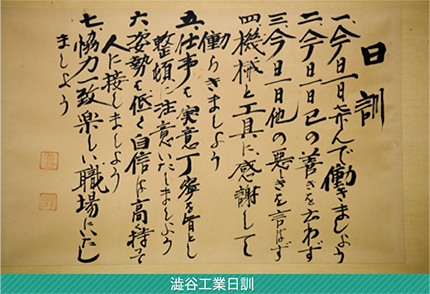 日訓
一、今日一日喜んで働きましょう
二、今日一日己の善きを云わず
三、今日一日他の悪しきを言はず
四、機械と工具に感謝して
働らきましょう
五、仕事は実意丁寧を旨とし
整頓に注意いたしましょう
六、姿勢は低く自信は高く持って
人に接しましょう
七、協力一致楽しい職場にいたし
ましょう
澁谷工業日訓